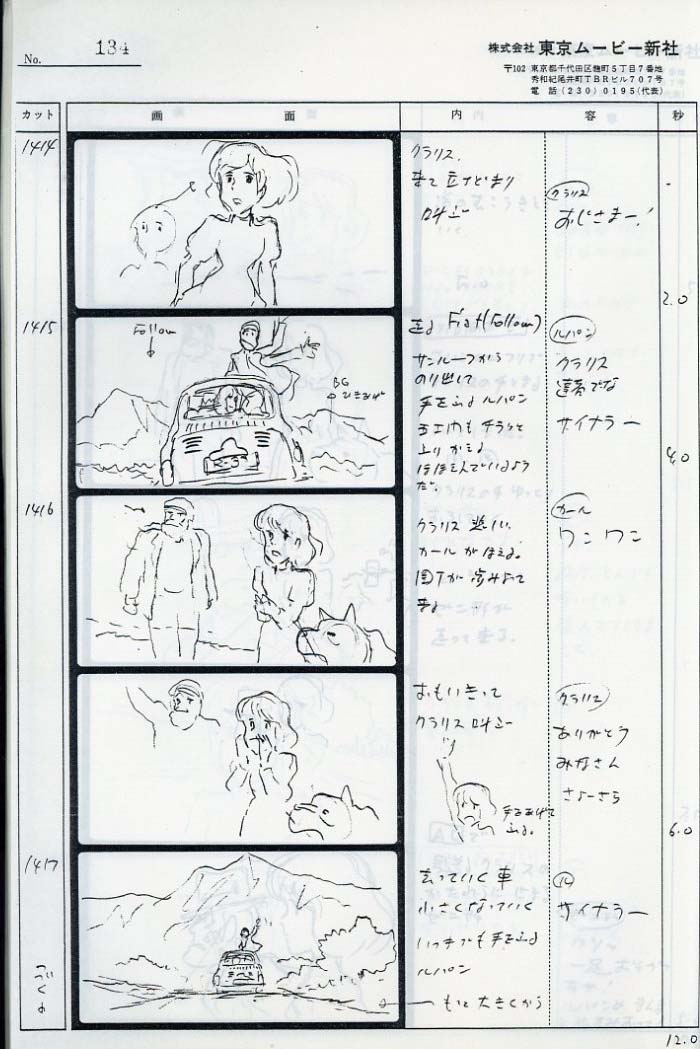 No. 134
株式会社 東京ムービー新社
〒102 東京都千代田区麹町5丁目7番地
秀和紀尾井町TBRビル707号
電話(230)0195(代表)
カット 画面 内容 秒
1414
クラリス.
来て立ちどまり
叫ぶ
クラリス
おじさまー!
2.0
1415
Follow
BG
走る Fiat (Follow)
サンルーフから
のり出して
手をふるルパン
五エ門もチラリと
ほほえんでいるよう
だ。
ルパン
クラリス
達者でな
サイナラー
4.0
1416
クラリス 悲しい.
カールがほえる.
園丁が歩みよって
来る
カール
ワン ワン
おもいきって
クラリス叫ぶ
手をあげて
ふる。
クラリス
ありがとう
みなさん
さよーなら
6.0
1417
去っていく車
小さくなっていく
いつまでも手をふる
ルパン
もっと大きくから
ル
サイナラー
つづくよ
12.0